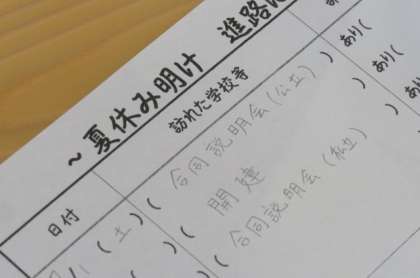 ～夏休み明け 進路
訪れた学校等
日付
あり(
(土)(合同説明会(公立)) あり(
( )(開建) あり(
( )(合同説明会(私立))